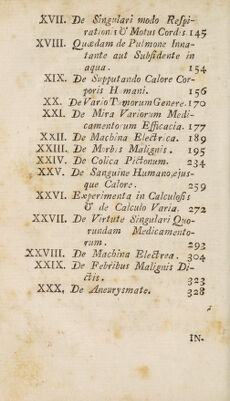 XVII. De Singulari modo Respi-
rationis & Motus Cordis 145
XVIII. Quædam de Pulmone Inna-
tante aut Subsidente in
aqua. 154
XIX. De Supputando Calore Cor-
poris Humani. 156
XX. De Vario Tumorum Genere. 170
XXI. De Mira Variorum Medi-
camentorum Efficacia. 177
XXII. De Machina Electrica. 189
XXIII. De Morbis Malignis. 195
XXIV. De Colica Pictonum. 234
XXV. De Sanguine Humano, ejus-
que Calore. 259
XXVI. Experimenta in Calculosis
& de Calculo Varia. 272
XXVII. De Virtute Singulari Quo-
rundam Medicamento-
rum. 293
XXVIII. De Machina Electrea. 304
XXIX. De Febribus Malignis Di-
ctis. 323
XXX. De Aneurysmate. 328
IN-